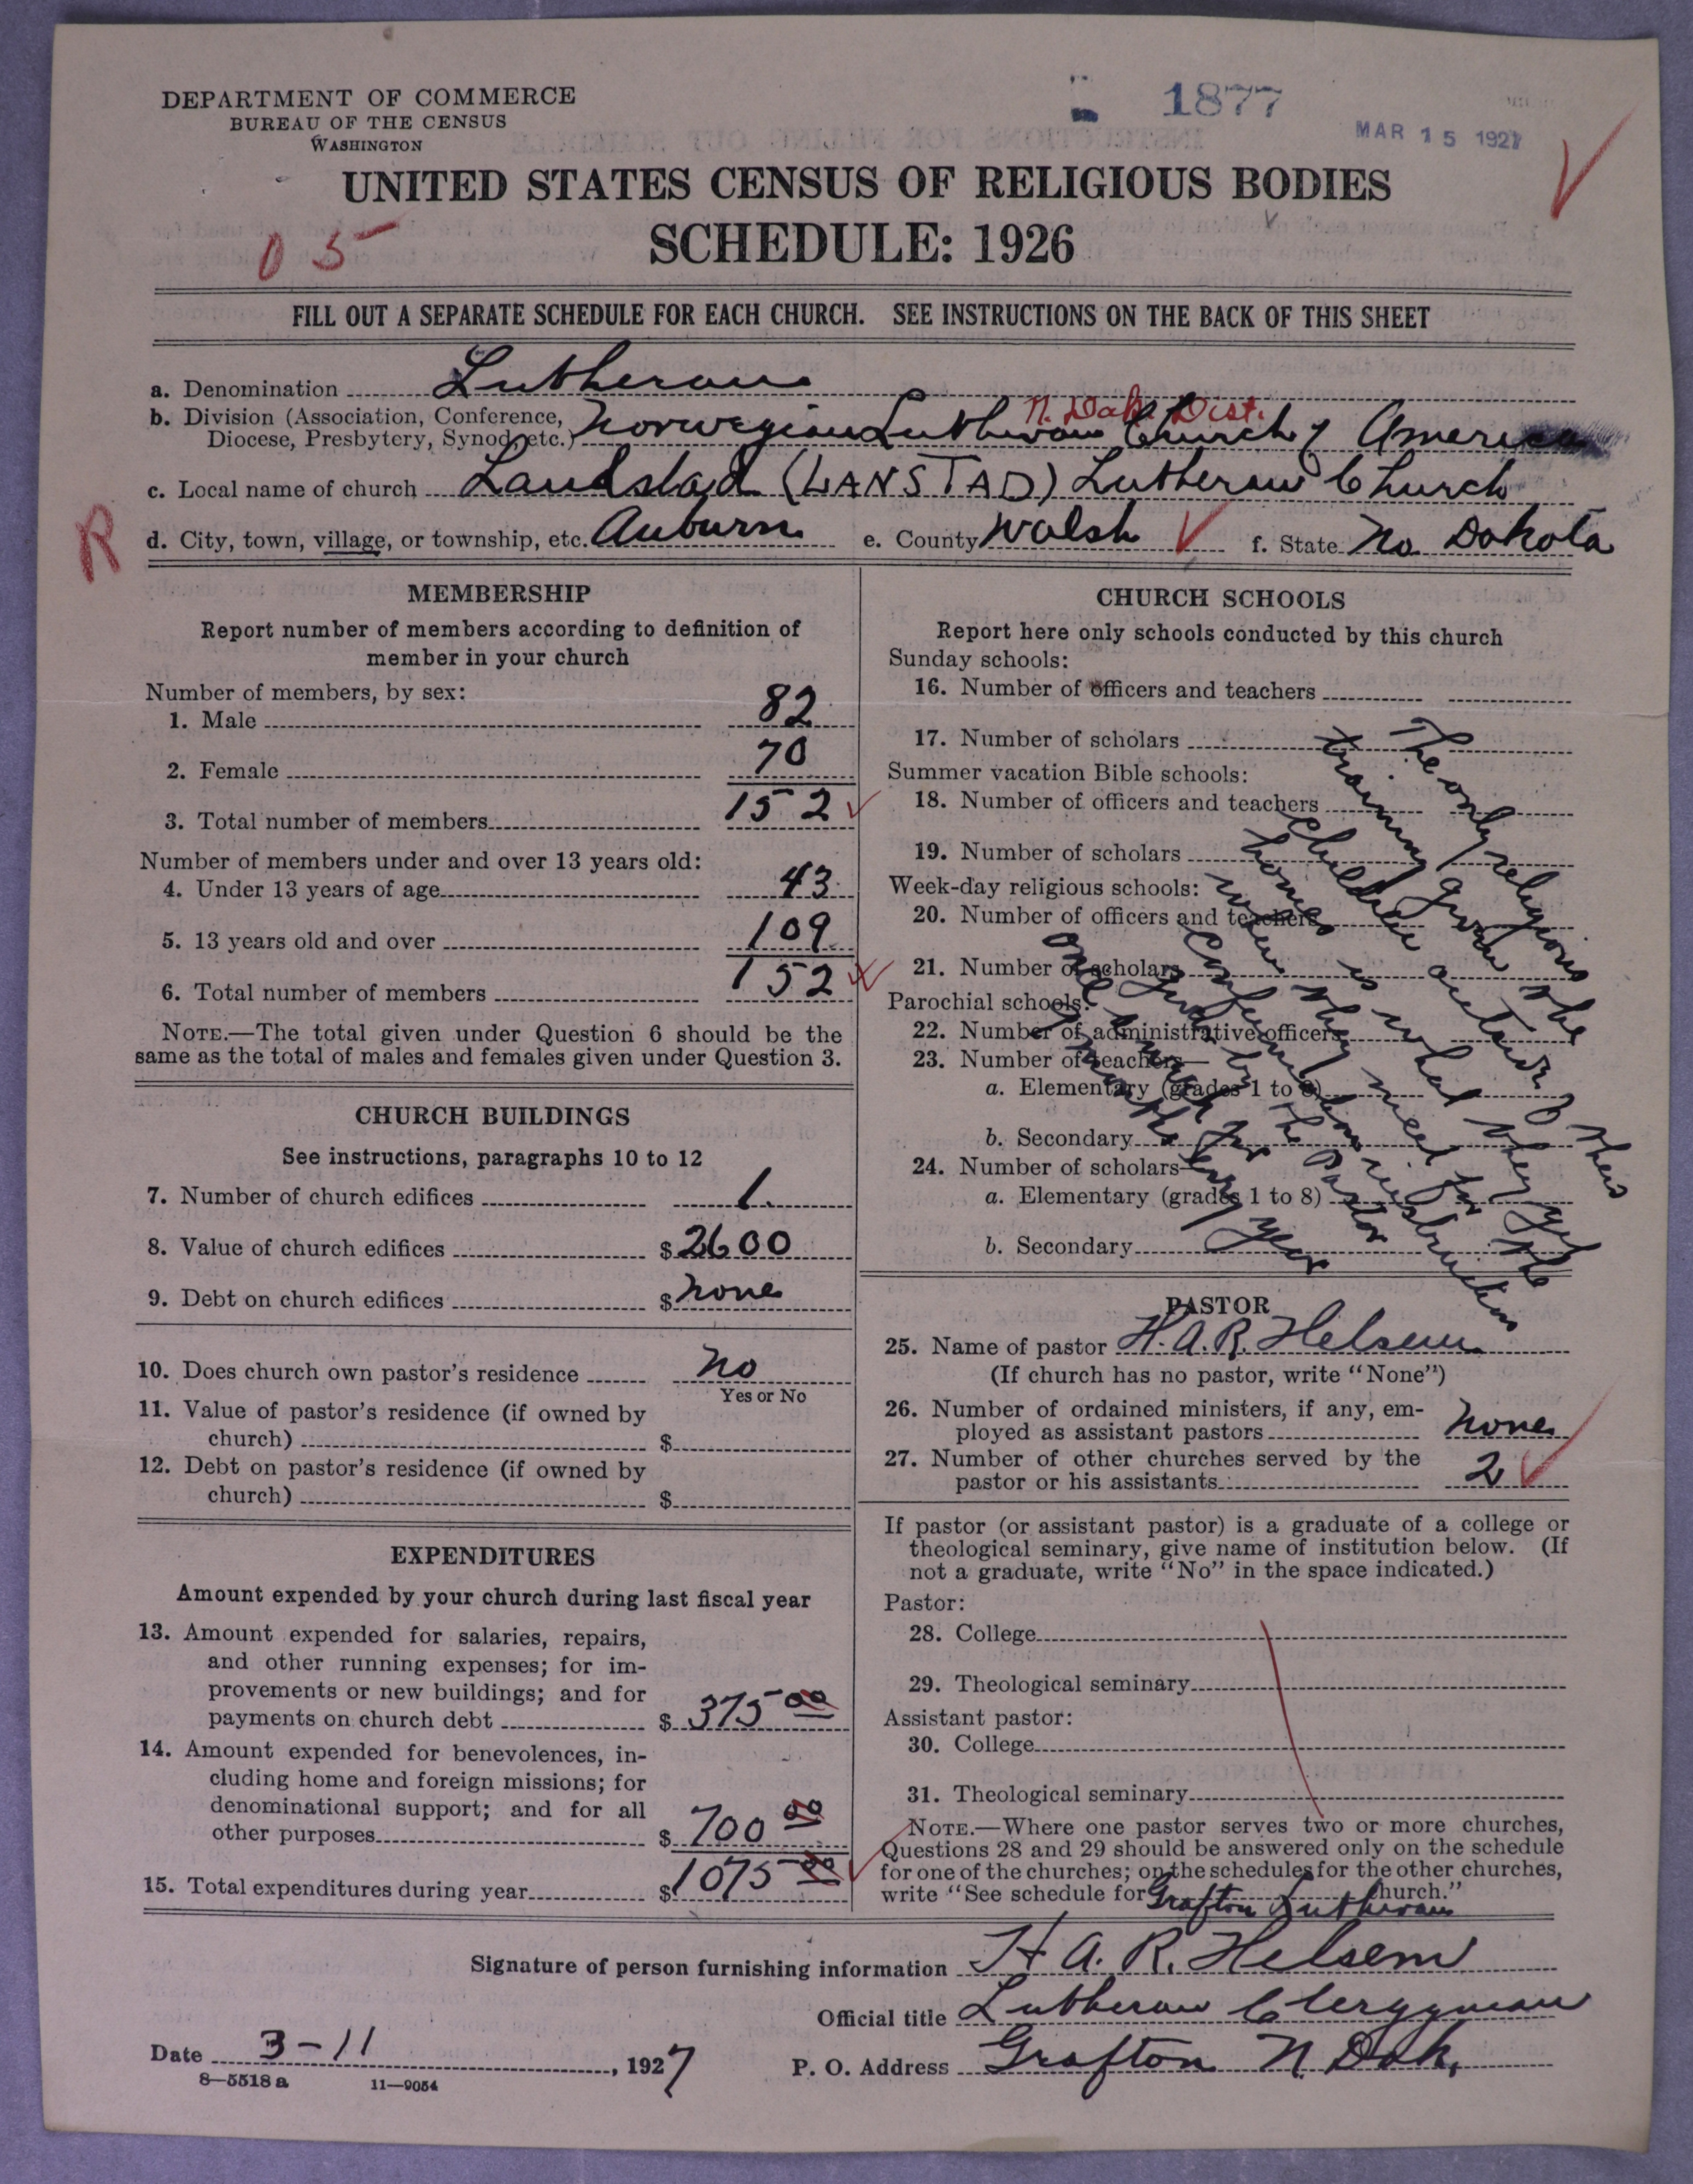 DEPARTMENT OF COMMERCE
BUREAU OF THE CENSUS
WASHINGTON
1877
MAR 15 1927
UNITED STATES CENSUS OF RELIGIOUS BODIES
SCHEDULE: 1926
05
FILL OUT A SEPARATE SCHEDULE FOR EACH CHURCH. SEE INSTRUCTIONS ON THE BACK OF THIS SHEET
a. Denomination Lutheran
N. Dak. Dist.
b. Division (Association, Conference, Diocese, Presbytery, Synod, etc.) Norwegian Lutheran Church of America
c. Local name of church Landstad (LANSTAD) Lutheran Church
R
d. City, town, village, or township, etc. Auburn e. County Walsh f. State No Dakota
MEMBERSHIP
Report number of members according to definition of
member in your church
Number of members, by sex:
1. Male 82
2. Female 70
3. Total number of members 152
Number of members under and over 13 years old:
4. Under 13 years of age 43
5. 13 years old and over 109
6. Total number of members 152
NOTE.—The total given under Question 6 should be the
same as the total of males and females given under Question 3.
CHURCH BUILDINGS
See instructions, paragraphs 10 to 12
7. Number of church edifices 1.
8. Value of church edifices $2600
9. Debt on church edifices $none
10. Does church own pastor's residence no
Yes or No
11. Value of pastor's residence (if owned by
church) $
12. Debt on pastor's residence (if owned by
church) $
EXPENDITURES
Amount expended by your church during last fiscal year
13. Amount expended for salaries, repairs,
and other running expenses; for im-
provements or new buildings; and for
payments on church debt $ 375 00
14. Amount expended for benevolences, in-
cluding home and foreign missions; for
denominational support; and for all
other purposes $ 700 00
15. Total expenditures during year $1075 00
CHURCH SCHOOLS
Report here only schools conducted by this church
Sunday schools:
16. Number of officers and teachers
17. Number of scholars
Summer vacation Bible schools:
18. Number of officers and teachers
19. Number of scholars
Week-day religious schools:
20. Number of officers and teachers
21. Number of scholars
Parochial schools:
22. Number of administrative officers
23. Number of teachers—
a. Elementary (grades 1 to 8)
b. Secondary
24. Number of scholars—
a. Elementary (grades 1 to 8)
b. Secondary
The only religious
training given the
children outside of their
homes is what they get
when they meet for the
confirmation instruction
given by the pastor
one week for
every year
PASTOR
25. Name of pastor H. A. R. Helsem
(If church has no pastor, write "None")
26. Number of ordained ministers, if any, em-
ployed as assistant pastors none
27. Number of other churches served by the
pastor or his assistants 2
If pastor (or assistant pastor) is a graduate of a college or
theological seminary, give name of institution below. (If
not a graduate, write "No" in the space indicated.)
Pastor:
28. College
29. Theological seminary
Assistant pastor:
30. College
31. Theological seminary
NOTE.—Where one pastor serves two or more churches,
Questions 28 and 29 should be answered only on the schedule
for one of the churches; on the schedules for the other churches,
write "See schedule for Grafton Lutheran Church."
Signature of person furnishing information H A. R. Helsem
Official title Lutheran Clergyman
Date 3-11, 1927 P. O. Address Grafton N. Dak.
8—5518 a 11—9054